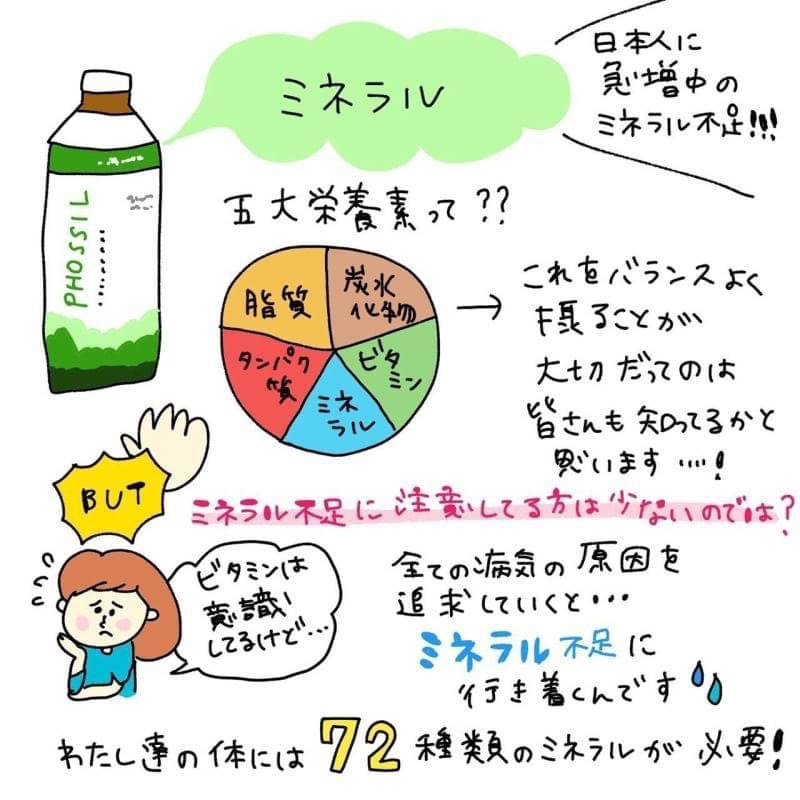 ミネラル
日本人に
急増中の
ミネラル不足!!!
PHOSSIL
五大栄養素って??
脂質
炭水
化物
タンパク
質
ミネ
ラル
ビタ
ミン
→ これをバランスよく
摂ることが
大切だってのは
皆さんも知ってるかと
思います….!
BUT
ミネラル不足に注意してる方は少ないのでは?
ビタミンは
意識し
てるけど…
全ての病気の原因を
追求していくと…
ミネラル不足に
行き着くんです
わたし達の体には72種類のミネラルが必要!